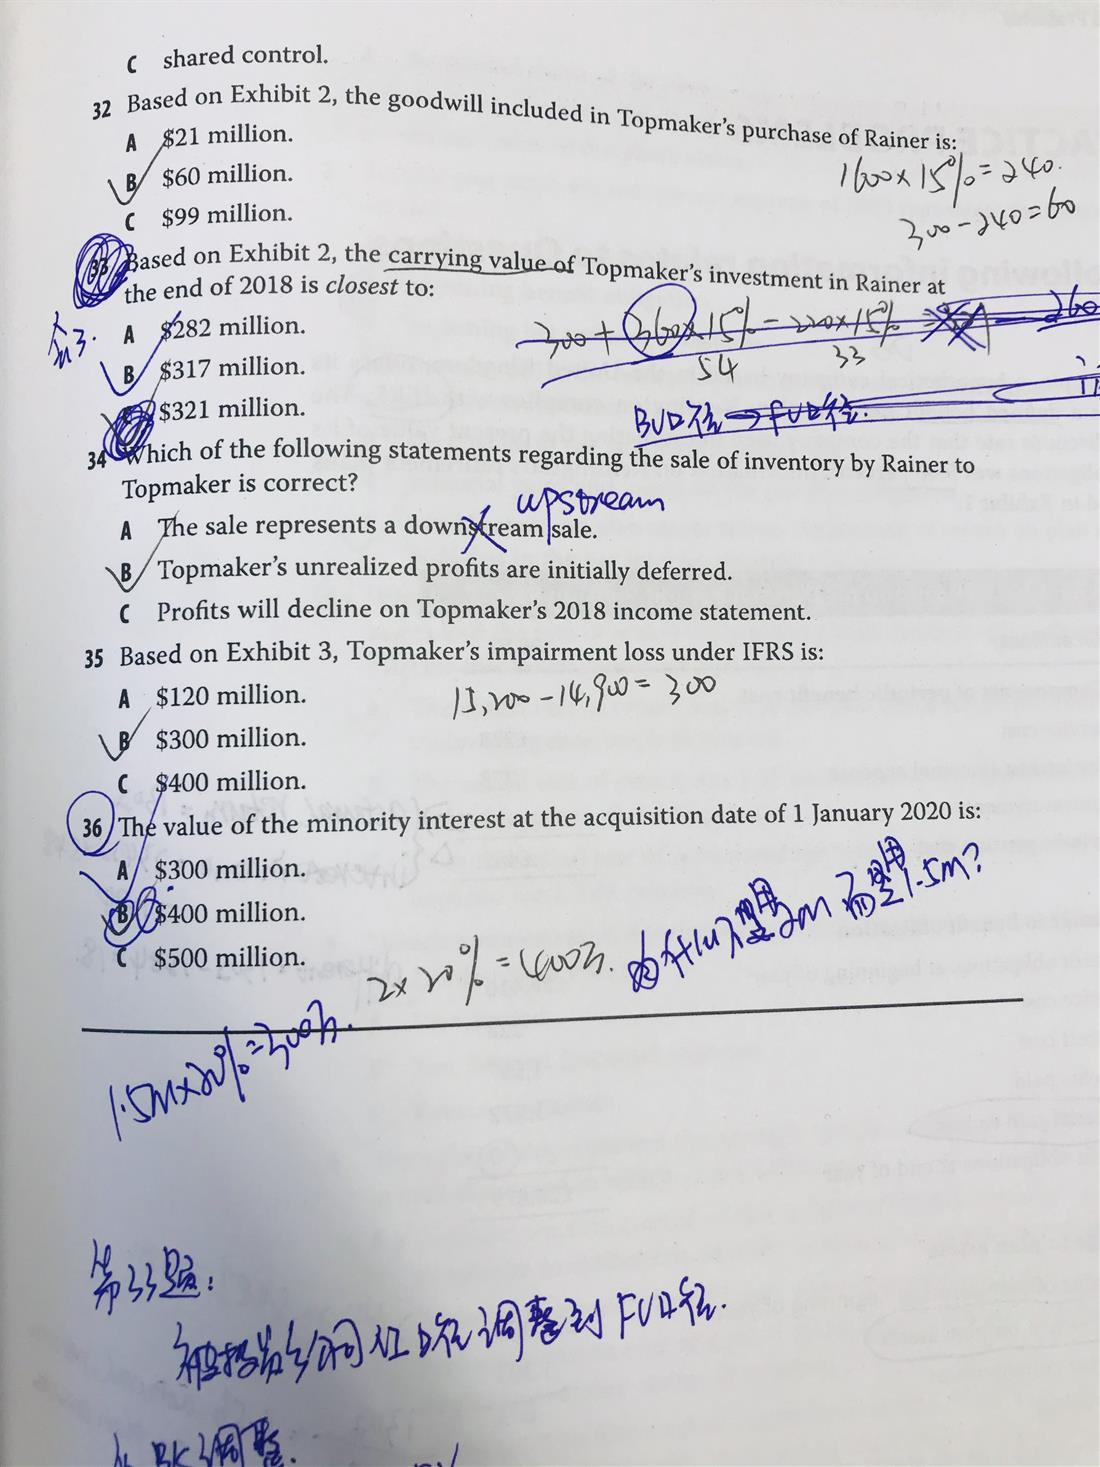 C shared control.
32 Based on Exhibit 2, the goodwill included in Topmaker's purchase of Rainer is:
A $21 million.
1600×15%=240.
B $60 million.
300-240=60
C $99 million.
33 Based on Exhibit 2, the carrying value of Topmaker's investment in Rainer at
the end of 2018 is closest to:
A $282 million.
300+360×15%-220×15%
B $317 million.
54 33
C $321 million.
BV口径→FV口径.
34 Which of the following statements regarding the sale of inventory by Rainer to
Topmaker is correct?
upstream
A The sale represents a downstream sale.
B Topmaker's unrealized profits are initially deferred.
C Profits will decline on Topmaker's 2018 income statement.
35 Based on Exhibit 3, Topmaker's impairment loss under IFRS is:
A $120 million.
15,200-14,900=300
B $300 million.
C $400 million.
36 The value of the minority interest at the acquisition date of 1 January 2020 is:
A $300 million.
B $400 million.
C $500 million.
2×20%=400万.
1.5M×20%=300万.
第33题:
调整到FV口径.
调整.